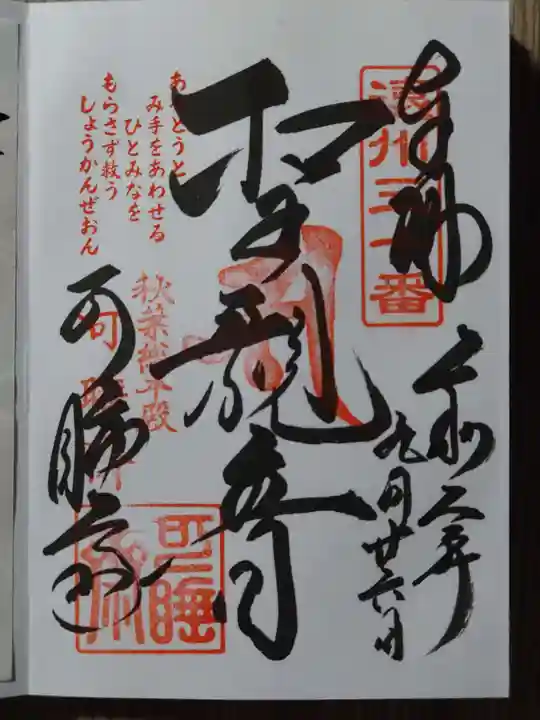 遠州三十一番
奉拝
令和二年
九月廿六日
聖観音
あなとうと
み手をあわせる
ひとみなを
もらさず救う
しょうかんぜおん
秋葉総本殿
可睡斎
可睡齋